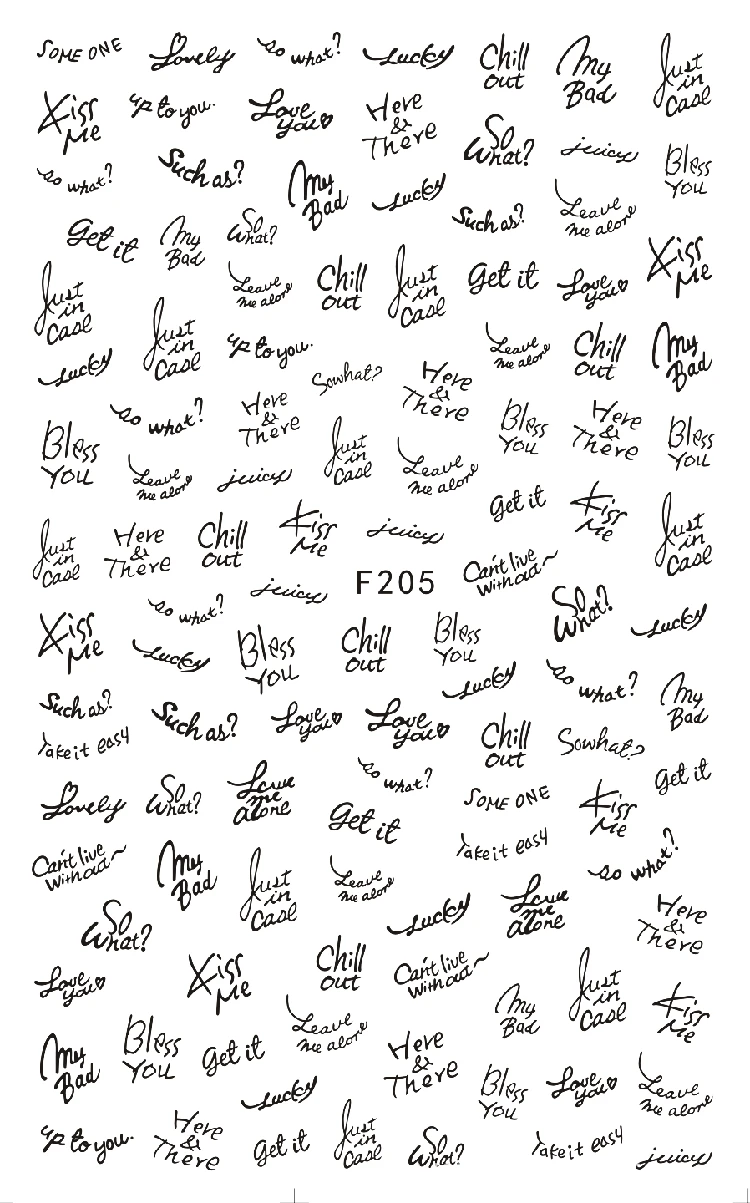 SOME ONE
Lovely
So what?
Lucky
Chill
out
My
Bad
Just
in
Case
Kiss
Me
up to you.
Love
you♡
Here
&
There
So
What?
juicy
Bless
You
So what?
Such as?
My
Bad
Lucky
Such as?
Leave
me alone
Get it
My
Bad
So
What?
Kiss
Me
Just
in
Case
Leave
me alone
Chill
out
Just
in
Case
Get it
Love
you♡
Just
in
Case
up to you.
Leave
me alone
Chill
out
My
Bad
Lucky
So what?
Here
&
There
Sowhat?
Here
&
There
Bless
You
Here
&
There
Bless
You
Bless
You
Leave
me alone
juicy
Just
in
Case
Leave
me alone
Get it
Kiss
Me
Just
in
Case
Just
in
Case
Here
&
There
Chill
out
Kiss
Me
juicy
F205
Can't live
Without~
juicy
So what?
So
What?
Lucky
Kiss
Me
Lucky
Bless
You
Chill
out
Bless
You
Lucky
So what?
My
Bad
Such as?
Such as?
Love
you♡
Love
you♡
Chill
out
Sowhat?
Take it easy
Get it
Lovely
So
What?
Leave
me
alone
So what?
Get it
SOME ONE
Kiss
Me
Take it easy
Can't live
Without~
My
Bad
Just
in
Case
Leave
me alone
So what?
Lucky
Leave
me
alone
Here
&
There
So
What?
Love
you♡
Kiss
Me
Chill
out
Can't live
Without~
My
Bad
Just
in
Case
Kiss
Me
My
Bad
Bless
You
Get it
Leave
me alone
Here
&
There
Bless
You
Love
you♡
Leave
me alone
Lucky
up to you.
Here
&
There
Get it
Just
in
Case
So
What?
Take it easy
juicy